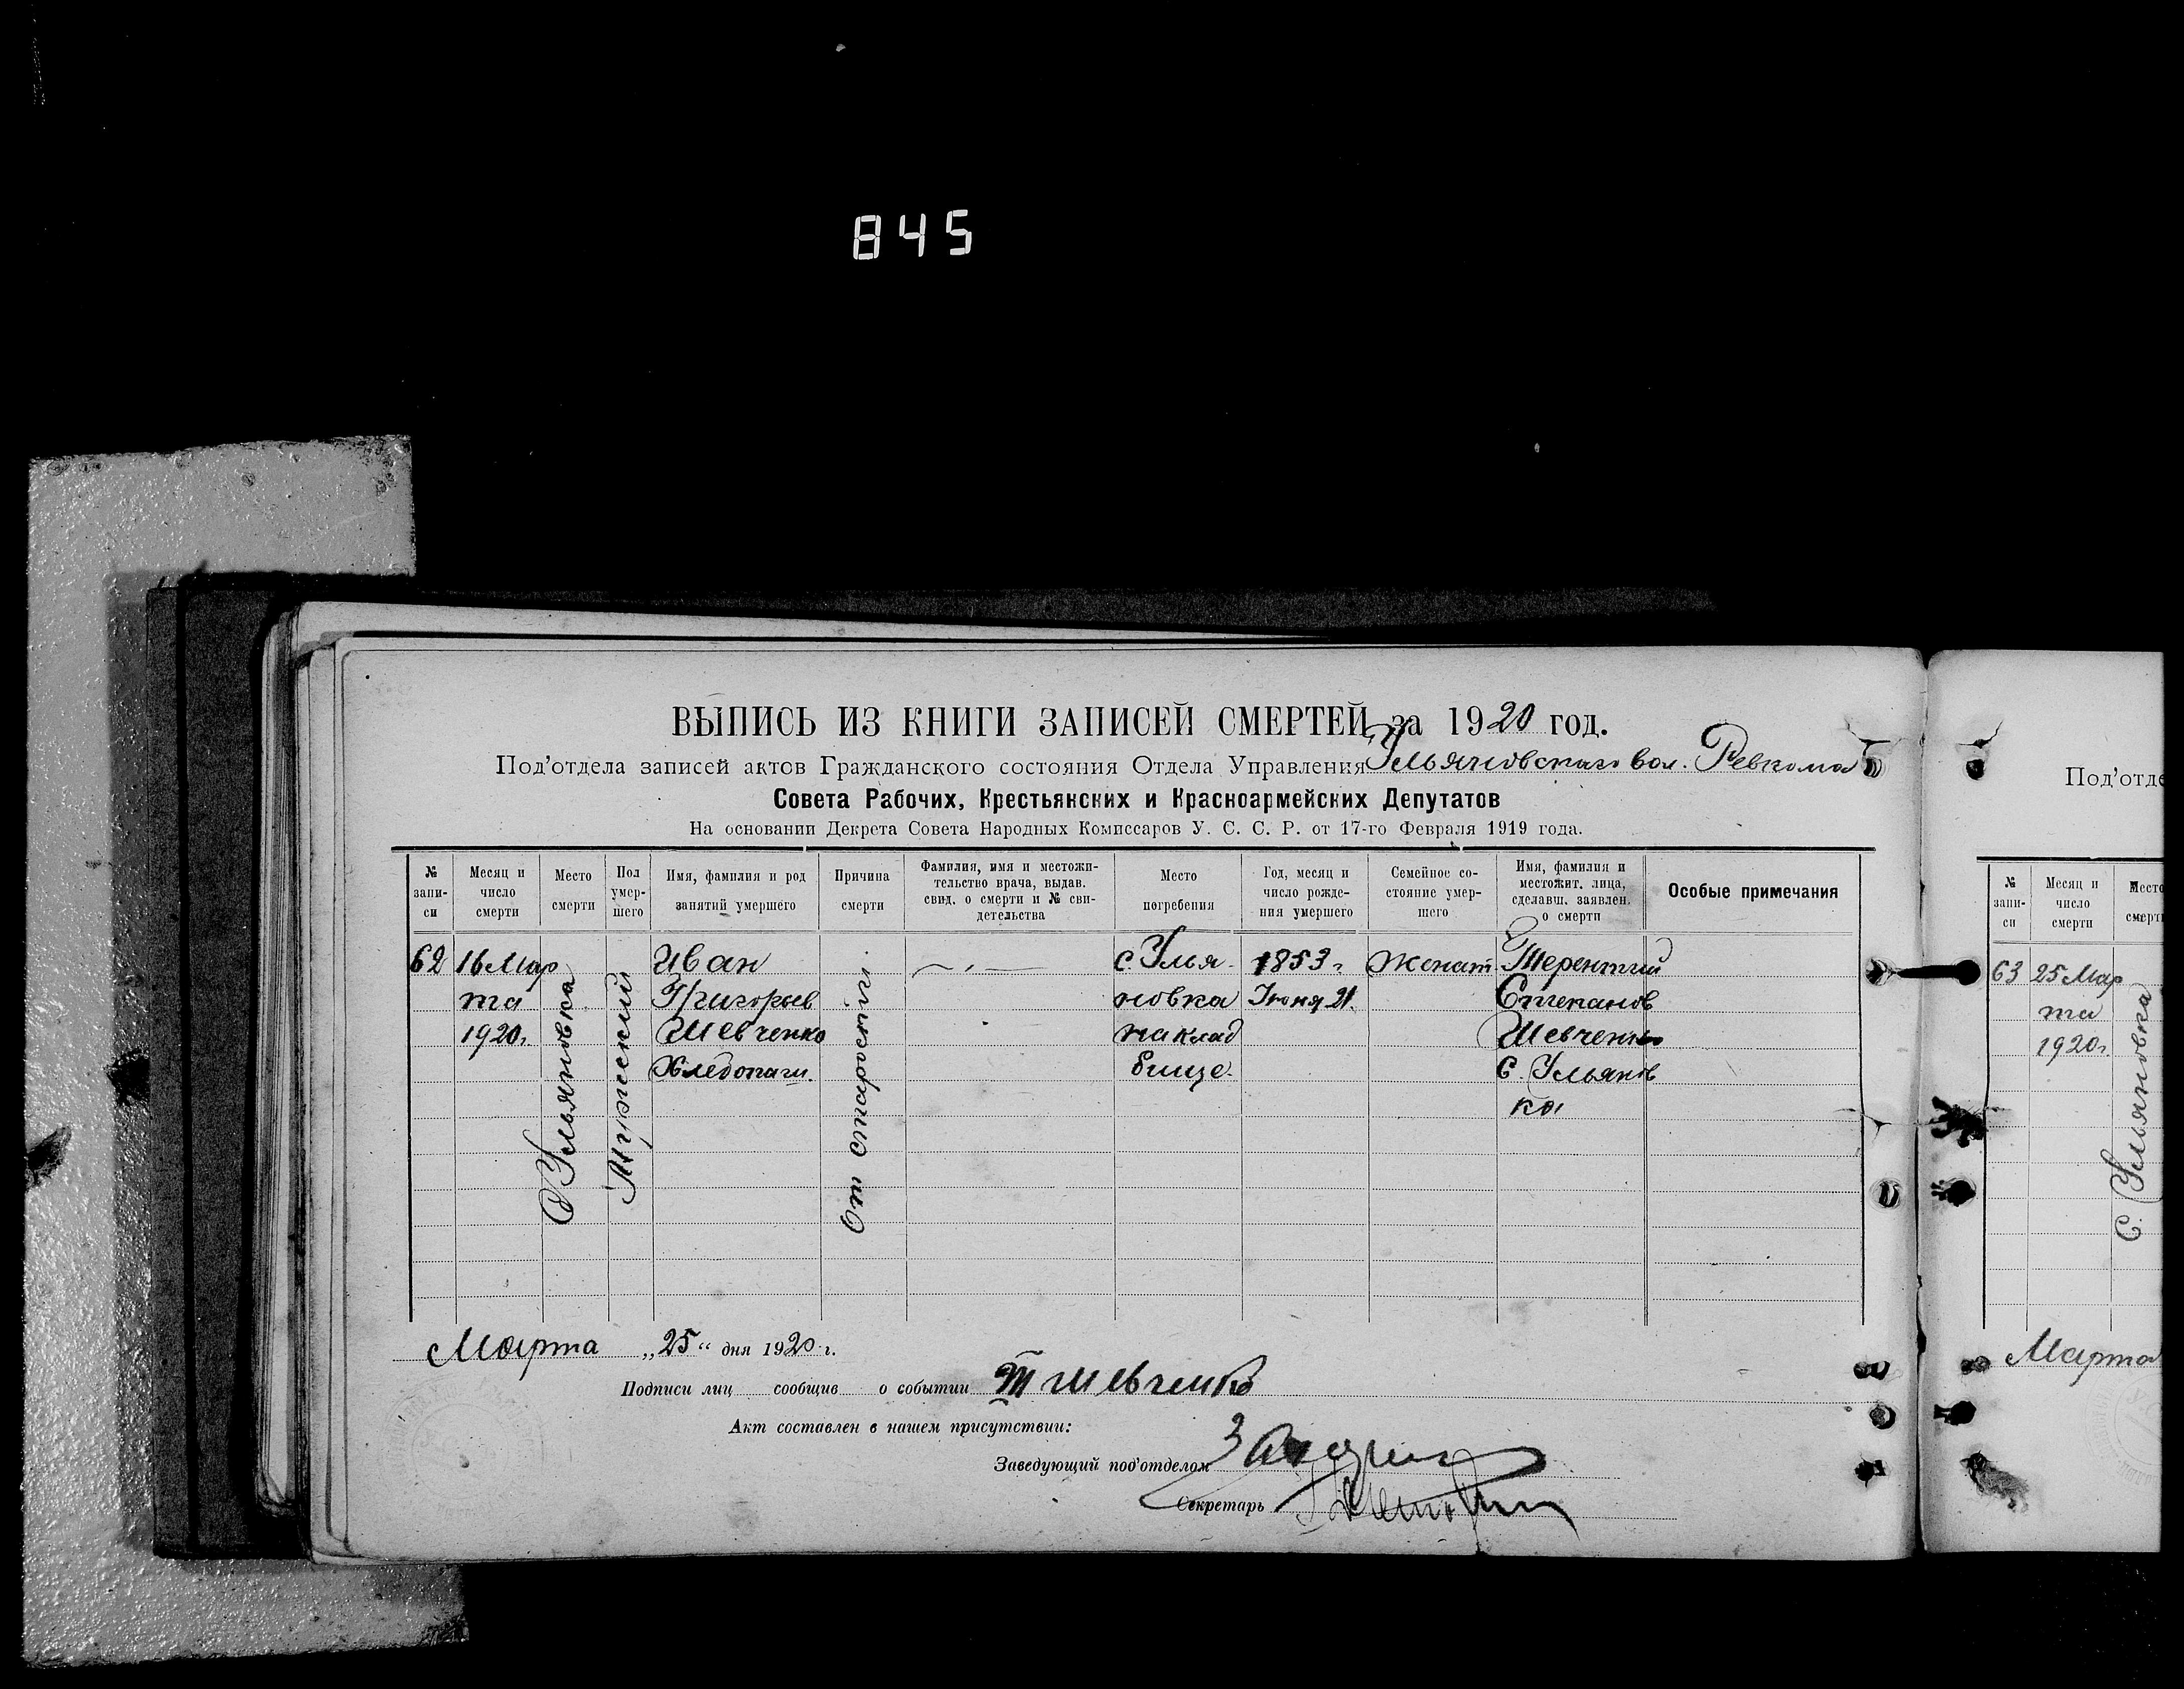 845
ВЫПИСЬ ИЗ КНИГИ ЗАПИСЕЙ СМЕРТЕЙ за 1920 год.
Под'отдела записей актов Гражданского состояния Отдела Управления Ульяновскаго вол. Ревкома
Совета Рабочих, Крестьянских и Красноармейских Депутатов
На основании Декрета Совета Народных Комиссаров У. С. С. Р. от 17-го Февраля 1919 года.
№ запи- си
Месяц и число смерти
Место смерти
Пол умер- шего
Имя, фамилия и род занятий умершего
Причина смерти
Фамилия, имя и местожи- тельство врача, выдав. свид. о смерти и № сви- детельства
Место погребения
Год, месяц и число рожде- ния умершего
Семейное со- стояние умер- шего
Имя, фамилия и местожит. лица, сделавш. заявлен. о смерти
Особые примечания
62
16 Мар
та
1920г.
С Ульяновка
Мужеский
Иван
Григорьев
Шевченко
Хлебопаш.
От старости
с. Улья-
новка
на клад
бище
1853 г.
Июня 21.
Женат
Терентий
Степанов
Шевченко
С. Ульянов
ка
Марта „25“ дня 1920 г.
Подписи лиц сообщив о событии Т Шевченко
Акт составлен в нашем присутствии:
Заведующий под'отделом
Секретарь
Под'отде
№ запи- си
Месяц и число смерти
Место смерти
63
25 Мар
та
1920г.
С. Ульяновка
Марта